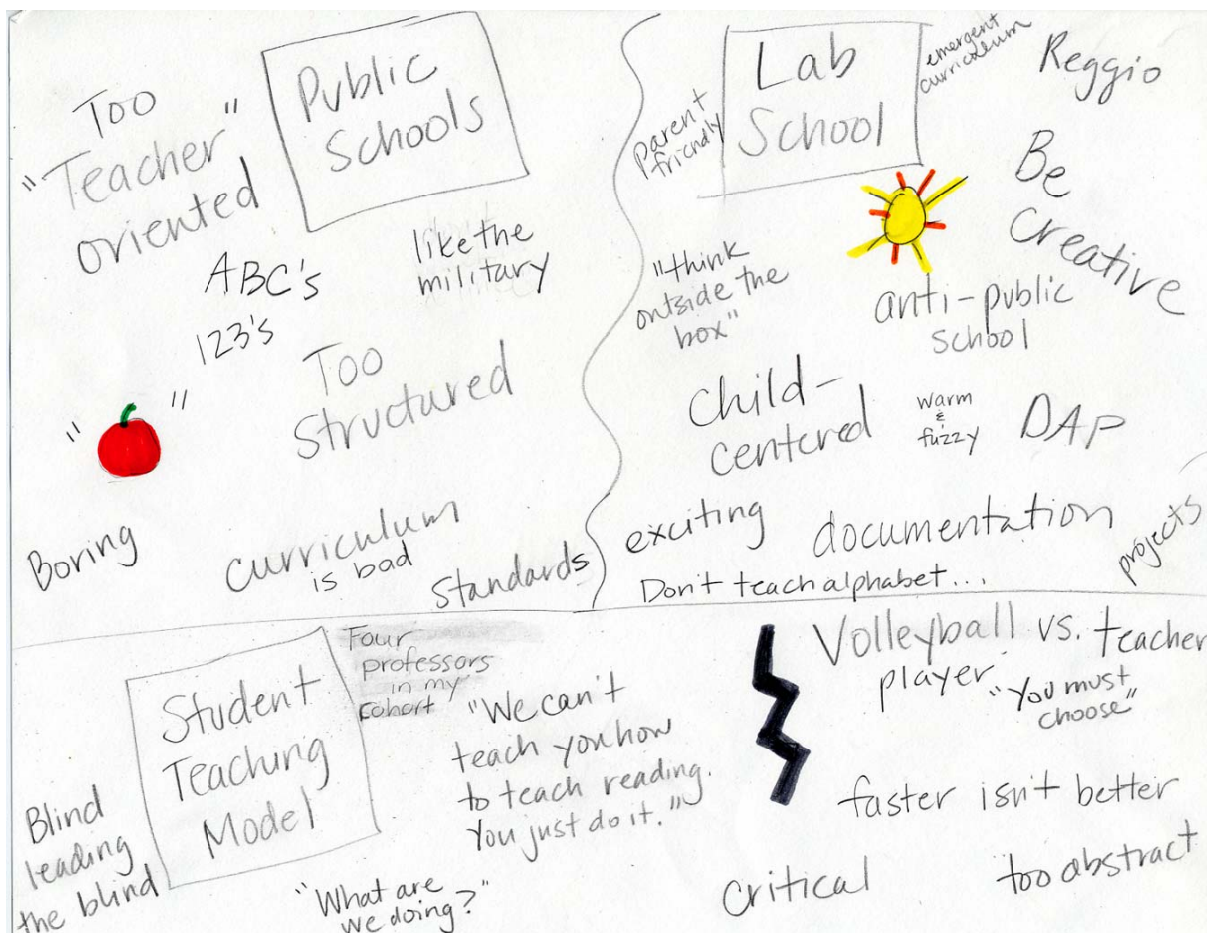 Too
"Teacher"
oriented
Public
Schools
ABC's
123's
like the
military
Too
Structured
" "
Boring
curriculum
is bad
Standards
Lab
School
parent
friendly
emergent
curriculum
Reggio
Be
Creative
"think
outside the
box"
anti-public
school
Child-
centered
warm
&
fuzzy
DAP
exciting
documentation
projects
Don't teach alphabet...
Student
Teaching
Model
Four
professors
in my
cohort
"We can't
teach you how
to teach reading.
You just do it."
Blind
leading
the blind
"What are
we doing?"
Volleyball vs. teacher
player
"You must
choose"
faster isn't better
Critical
too abstract